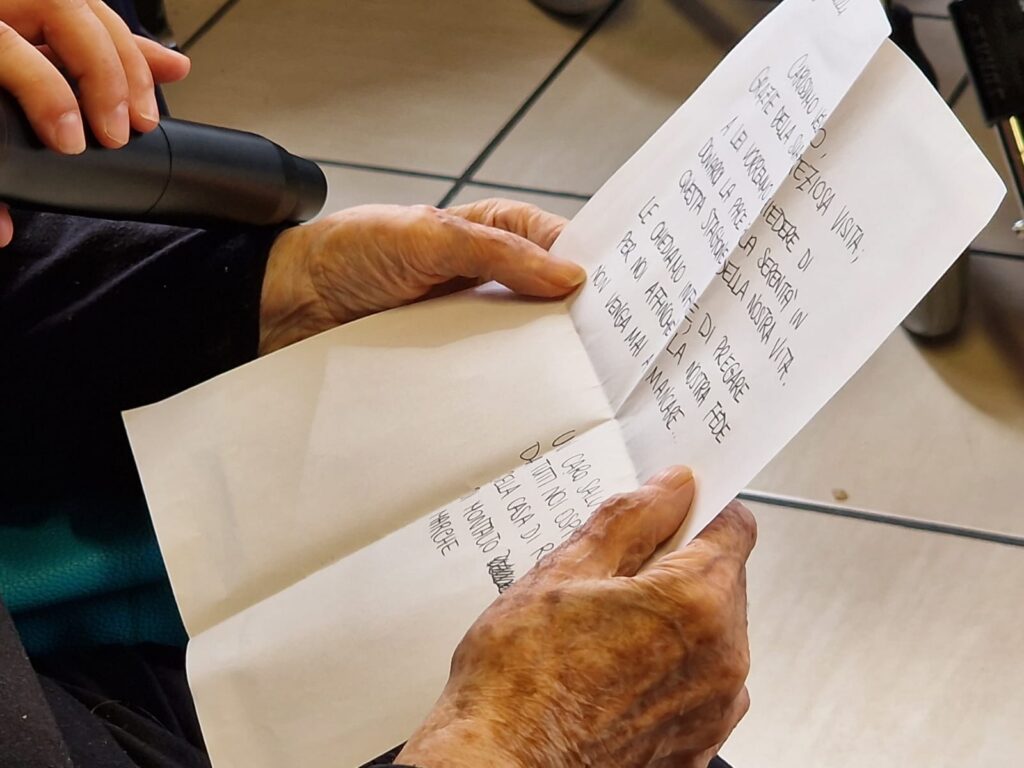 CARISSIMO VESCOVO,
GRAZIE DELLA SUA PREZIOSA VISITA,
A LEI VORREMMO CHIEDERE DI
DONARCI LA PACE E LA SERENITÀ IN
QUESTA STAGIONE DELLA NOSTRA VITA.
LE CHIEDIAMO INFINE DI PREGARE
PER NOI AFFINCHÈ LA NOSTRA FEDE
NON VENGA MAI A MANCARE...
UN CARO SALU
DA TUTTI NOI OSPI
DELLA CASA DI R
DI MONTALTO
MARCHE